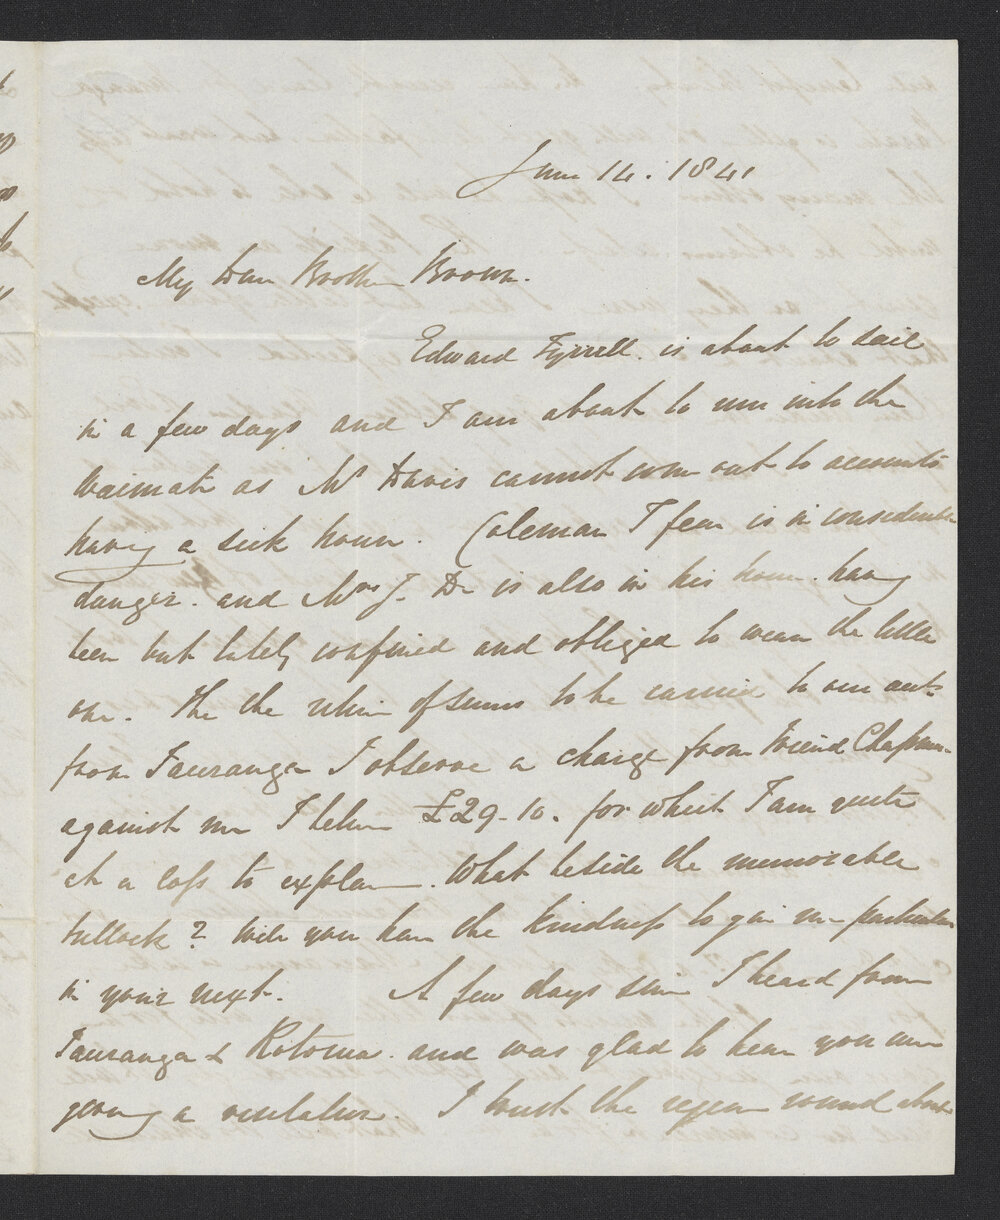 June 14. 1841
My Dear Brother Brown.
Edward Tyrrell. is about to sail
in a few days and I am about to run into the
Waimate as Mr Davis cannot come out to accounts
having a sick house. Coleman I fear is in considerable
danger. and Mrs J. Ds is also in his house. having
been but lately confined and obliged to wean the little
one. In the return of sums to be carried to our acct.
from Tauranga I observe a charge from Friend Chapman
against me I believe £29-10. for which I am quite
at a loss to explain. What beside the memorable
bullock? Will you have the kindness to give me particulars
in your next. A few days since I heard from
Tauranga & Rotorua. and was glad to hear you were
going a visitation. I trust the region round about